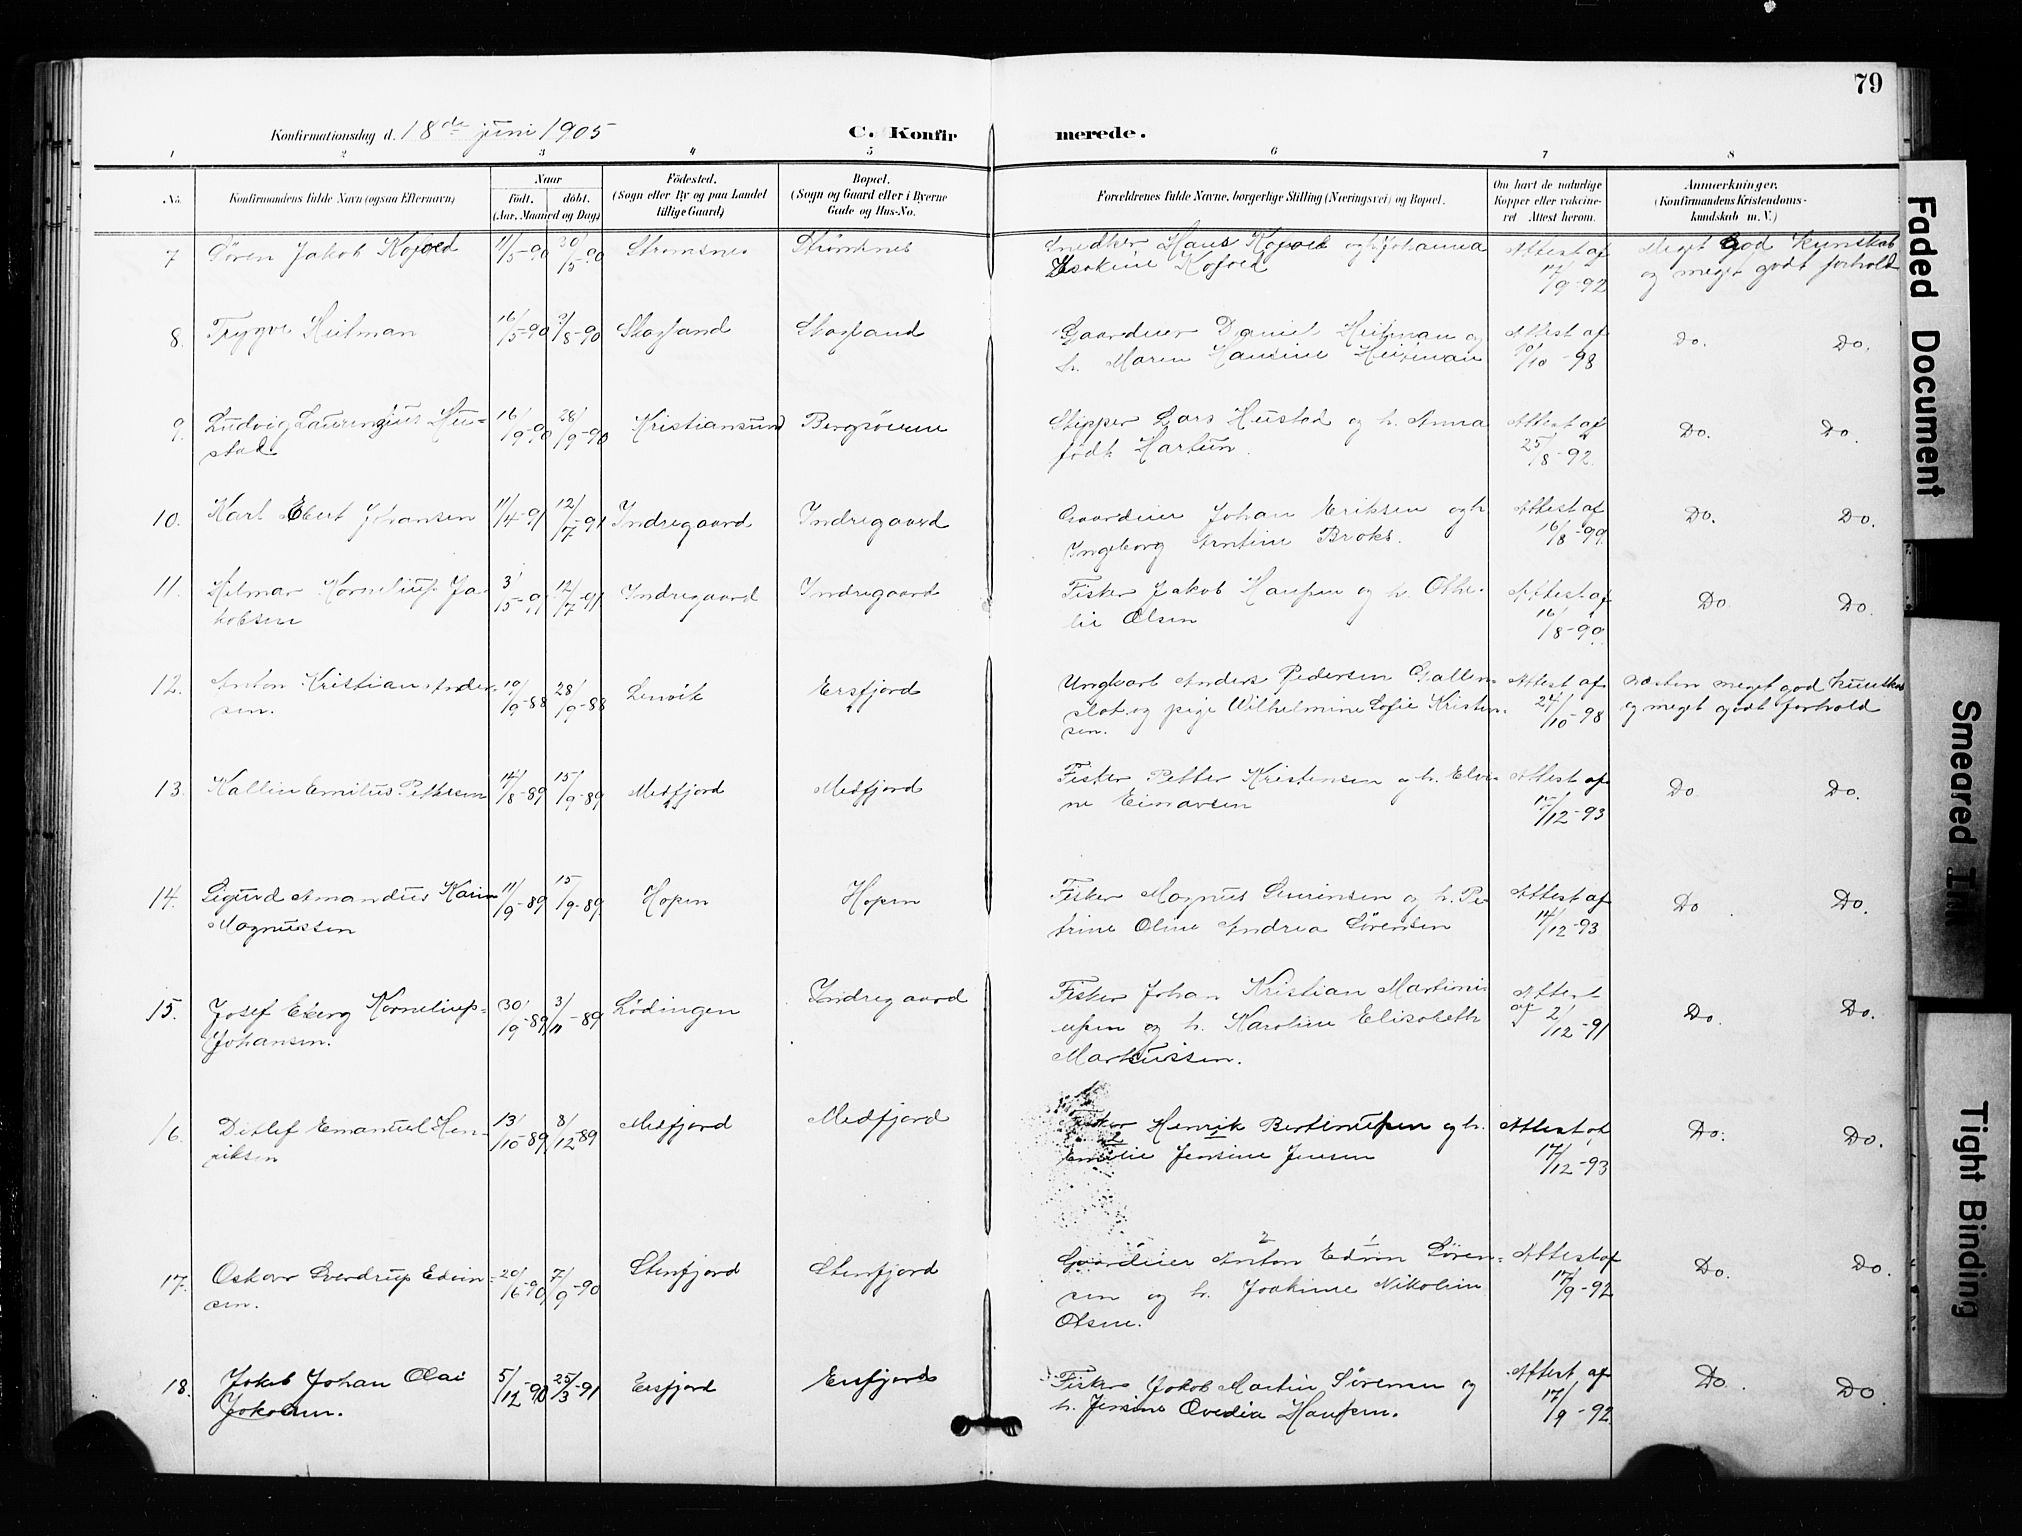 79
Konfirmationsdag d. 18de juni 1905
C. Konfir merede.
1 2 3 4 5 6 7 8
No.
Konfirmandens fulde Navn (ogsaa Efternavn)
Naar
födt. döbt.
(Aar, Maaned og Dag)
Födested.
(Sogn eller By og paa Landet
tillige Gaard)
Bopæl.
(Sogn og Gaard eller i Byerne
Gade og Hus-No.
Forældrenes fulde Navne, borgerlige Stilling (Næringsvei) og Bopæl.
Om havt de naturlige
Kopper eller vaccine-
ret Attest herom.
Anmærkninger.
(Konfirmandens Kristendoms-
kundskab m. V.)
7 Sören Jakob Kofoed 11/5-90 30/5-90 Strømsnes Strömsnes Snedker Hans Kofoed og h. Johanna Attest af Meget god kunskab
Esokine Kofoed 17/9-92 og meget godt forhold
8. Trygve Heitman 16/5-90 3/8-90 Skogland Skogland Gaardeier Daniel Heitman og Attest af Do. Do.
h. Maren Hansine Heitman /10-98
9. Ludvig Laurenzius Hu- 16/9-90 28/9-90 Kristiansund Bergsöerne Skipper Lars Hustad og h. Anna Attest af Do. Do.
stad födt Hartun. 25/8-92.
10. Karl Ebert Johansen 11/4-91 12/7-91 Indregaard Indregaard Gaardeier Johan Eriksen og h. Attest af Do. Do.
Ingeborg Arntine Broks. 16/8-99.
11. Hilmar Kornelius Ja- 3/5-91 12/7-91 Indregaard Indregaard Fisker Jakob Hansen og h. Othe- Attest af Do Do.
kobsen lie Olsen 16/8-99.
12. Anton Kristian Ander- 10/9-88 28/9-88 Lenvik Ersfjord Ungkarl Anders Pedersen Gallen- Attest af næsten meget god kunskab
sen. slot og pige Wilhelmine Sofie Kristen- 24/10-98 og meget godt forhold
sen.
13. Kallin Emilus Pettersen 14/8-89 15/9-89 Medfjord Medfjord Fisker Petter Kristensen og h. Elvi- Attest af Do Do.
ne Einarsen 17/12-93
14. Sigurd Amandus Karin 11/9-89 15/9-89. Hopen Hopen Fisker Magnus Sörensen og h. Pe- Attest af Do Do.
Magnussen trine Oline Andrea Sörensen 14/12-93
15. Josef Eberg Kornelius- 30/9-89 3/11-89 Lödingen Indregaard Fisker Johan Kristian Martini- Attest Do. Do.
Johansen. usen og h. Karoline Elisabeth af 2/12-91
Markussen.
16. Ditlef Emanuel Hen- 13/10-89 8/12-89 Medfjord Medfjord Fisker Henrik Bertinusen og h. Attest af Do. Do.
riksen Emilie Jensine Jensen 17/12-93
17. Oskar Sverdrup Edvin- 20/6-90 7/9-90 Stenfjord Stenfjord Gaardeier Anton Edvin Sören- Attest af Do. Do.
sen. sen og h. Joakime Nikoline 17/9-92
Olsen.
18. Jakob Johan Olai 5/12-90 25/3-91 Ersfjord Ersfjord Fisker Jakob Martin Sörensen og Attest af Do. Do
Jakobsen. h. Jensine Ovedia Hansen. 17/9-92
Faded Document
Smeared Ink
Tight Binding